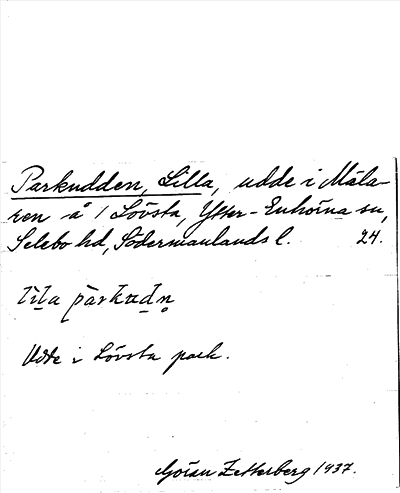 Parkudden, Lilla, udde i Mäla-
ren å 1 Lövsta, Ytter-Enhörna sn,
Selebo hd, Södermanlands l. 24.
lìla pàrkudn̥
Udde i Lövsta park.
Göran Zetterberg 1937.